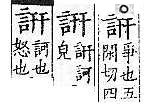 ○訮爭也五閑切四
訮訮訶皃
訮訶也怒也